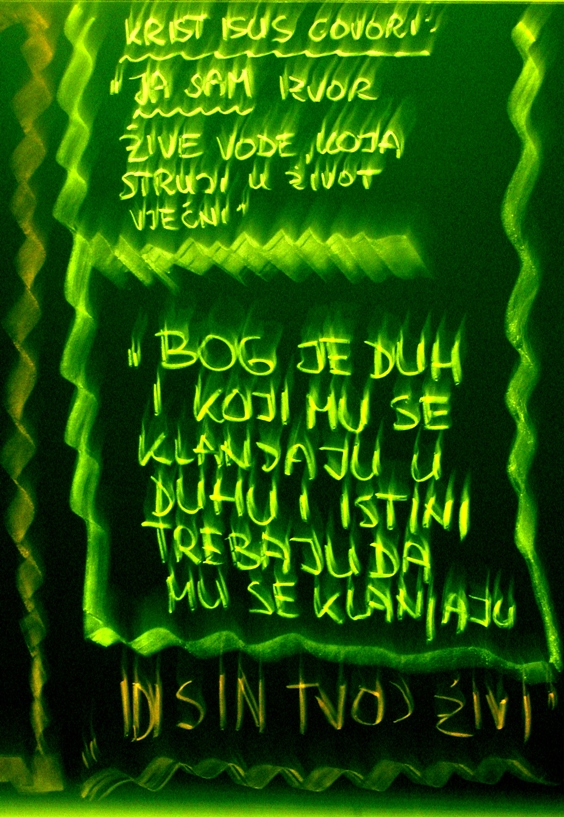 KRIST ISUS GOVORI:
"JA SAM IZVOR
ŽIVE VODE, KOJA
STRUJI U ŽIVOT
VJEČNI"
"BOG JE DUH
I KOJI MU SE
KLANJAJU U
DUHU I ISTINI
TREBAJU DA
MU SE KLANJAJU
"IDI SIN TVOJ ŽIVI"